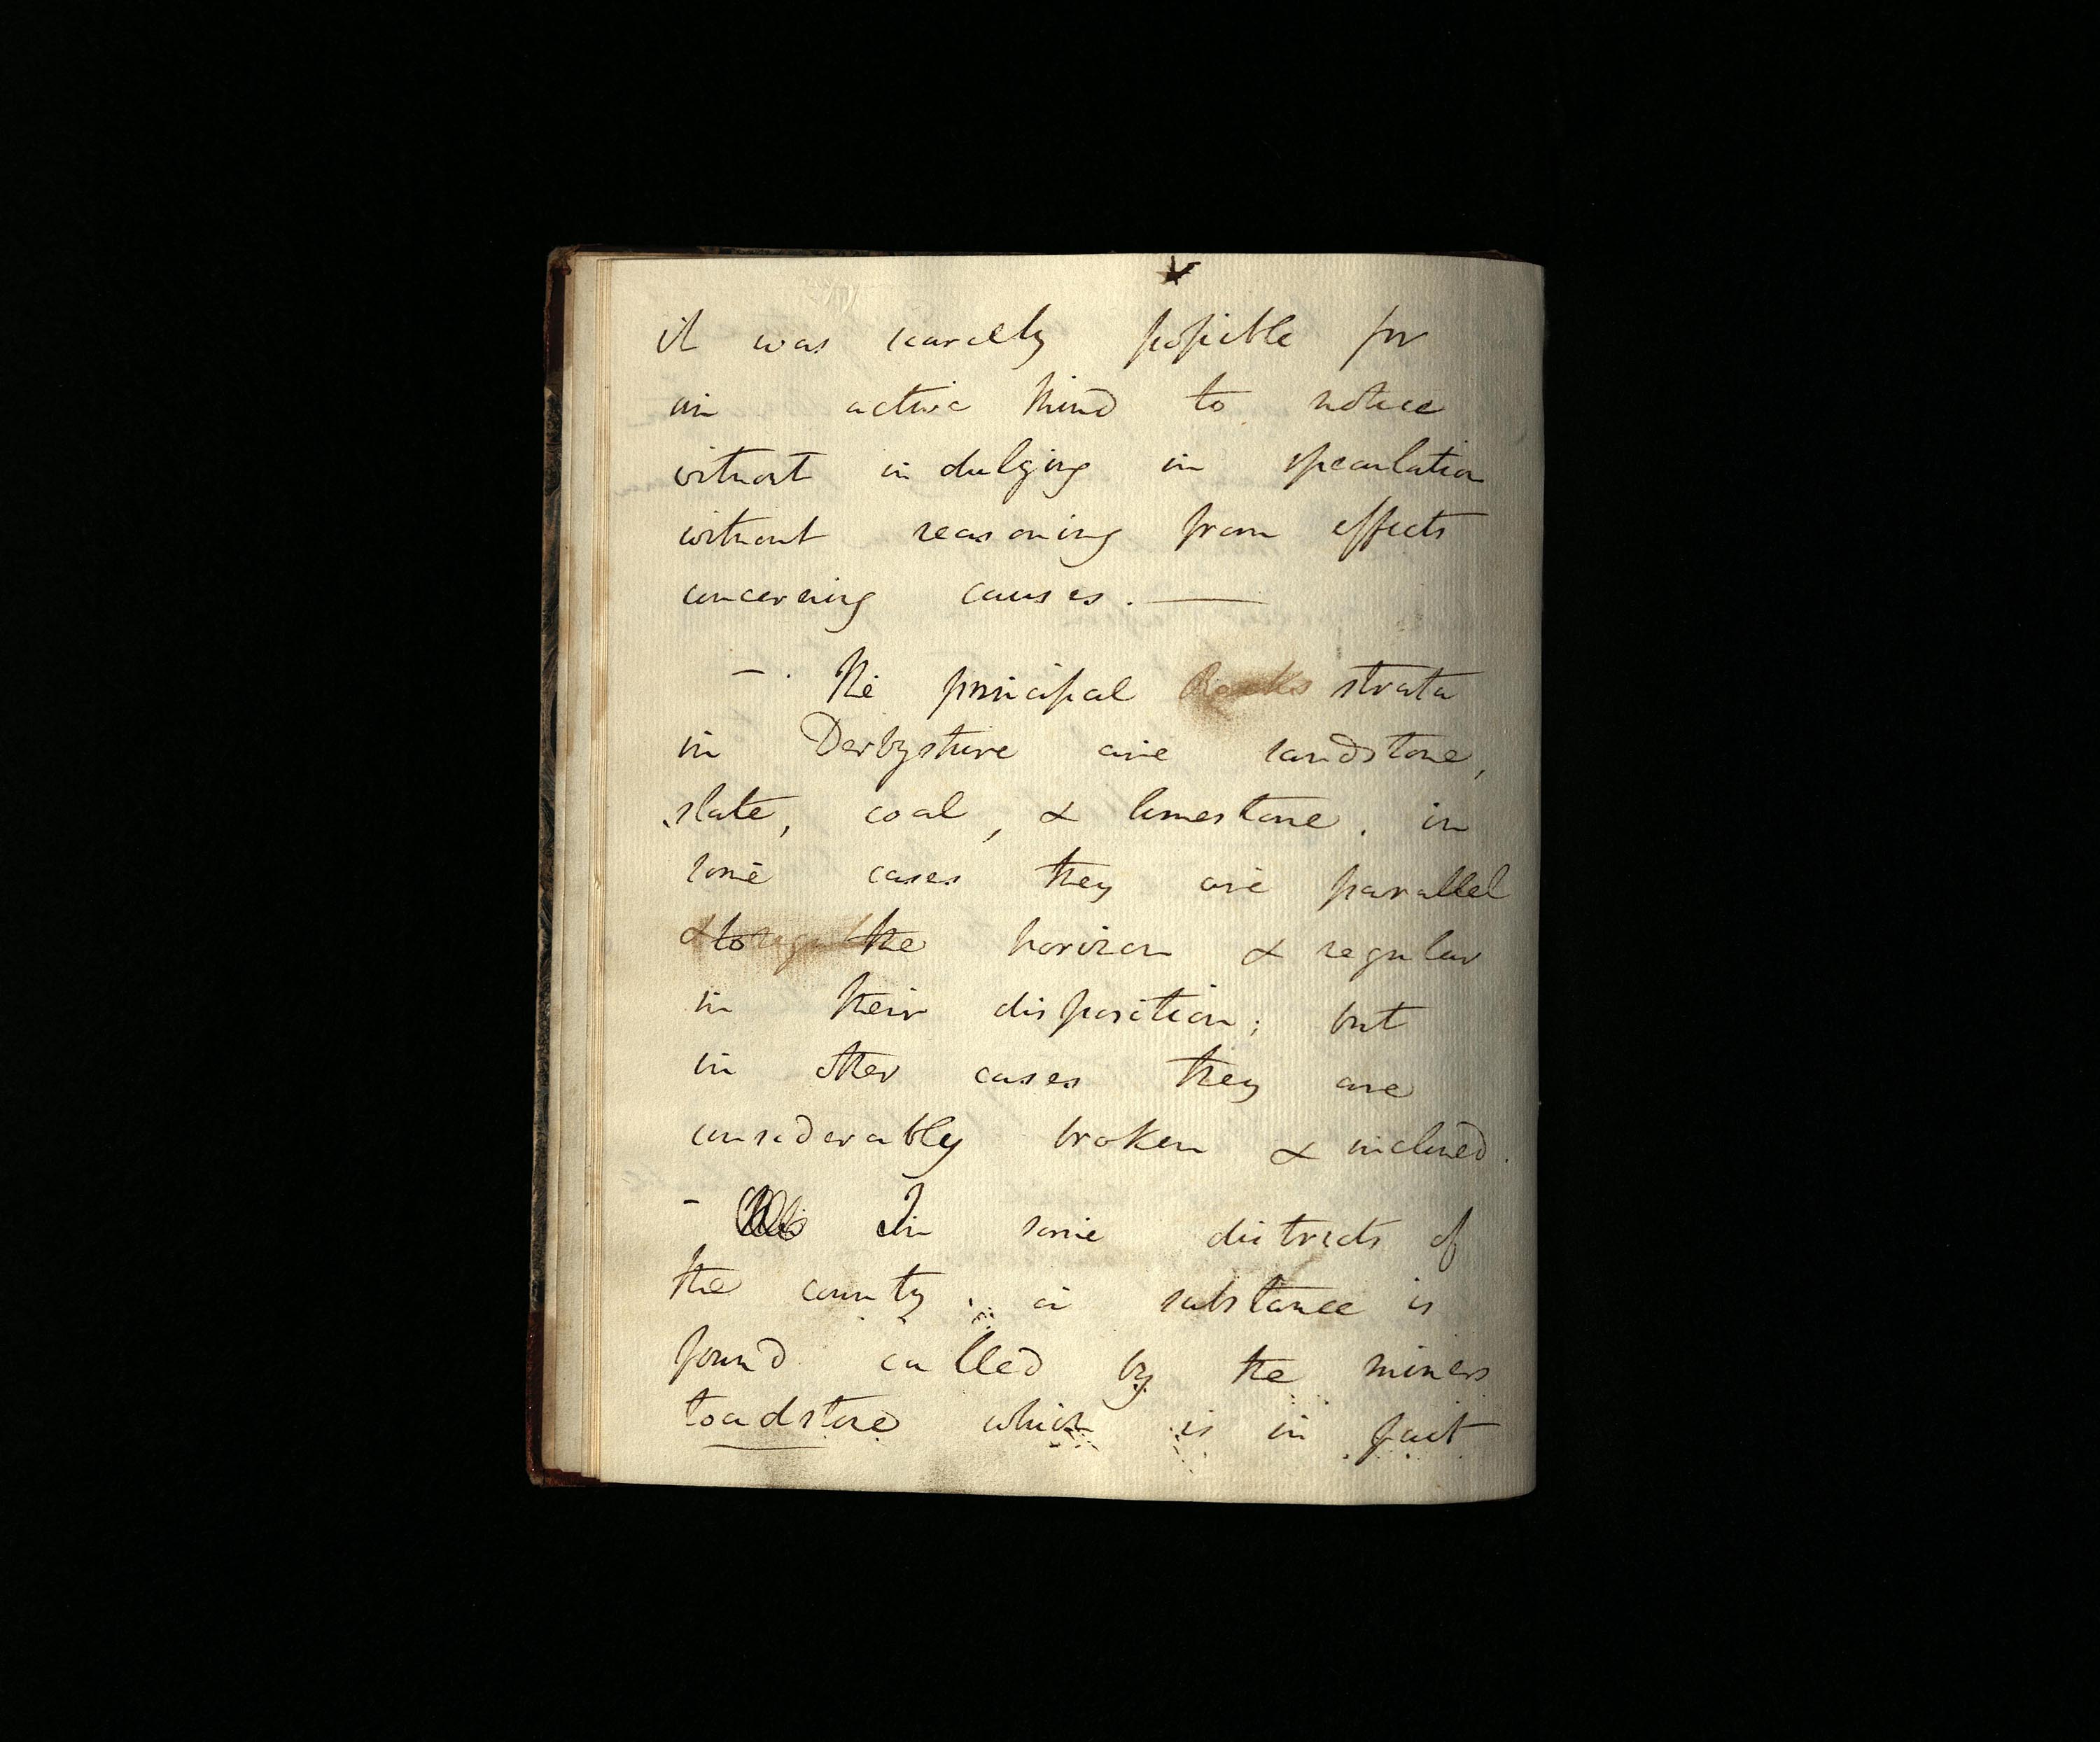 it was scarcely possible for
an active Mind to notice
without indulging in speculation
without reasoning from effects
concerning causes. —
– . The principal Rocks strata
in Derbyshire are sandstone,
slate, coal, & limestone. in
some cases they are parallel
& to the horizon & regular
in their disposition; but
in other cases they are
considerably broken & inclined.
– In some districts of
the county. a substance is
found called by the miners
toadstone which is in fact